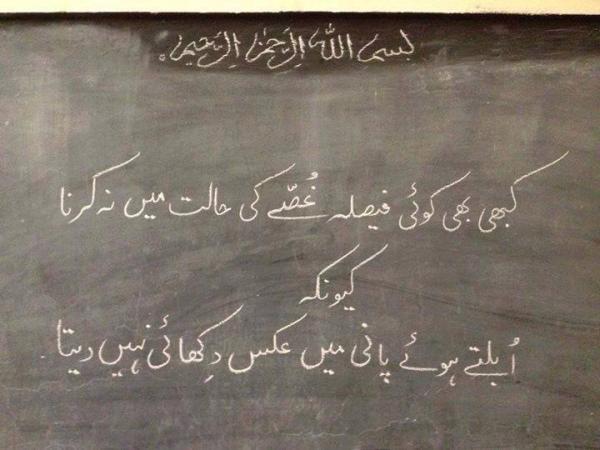 بسم الله الرحمن الرحيم
کبھی بھی کوئی فیصلہ غُصّے کی حالت میں نہ کرنا
کیونکہ
اُبلتے ہوئے پانی میں عکس دِکھائی نہیں دیتا.